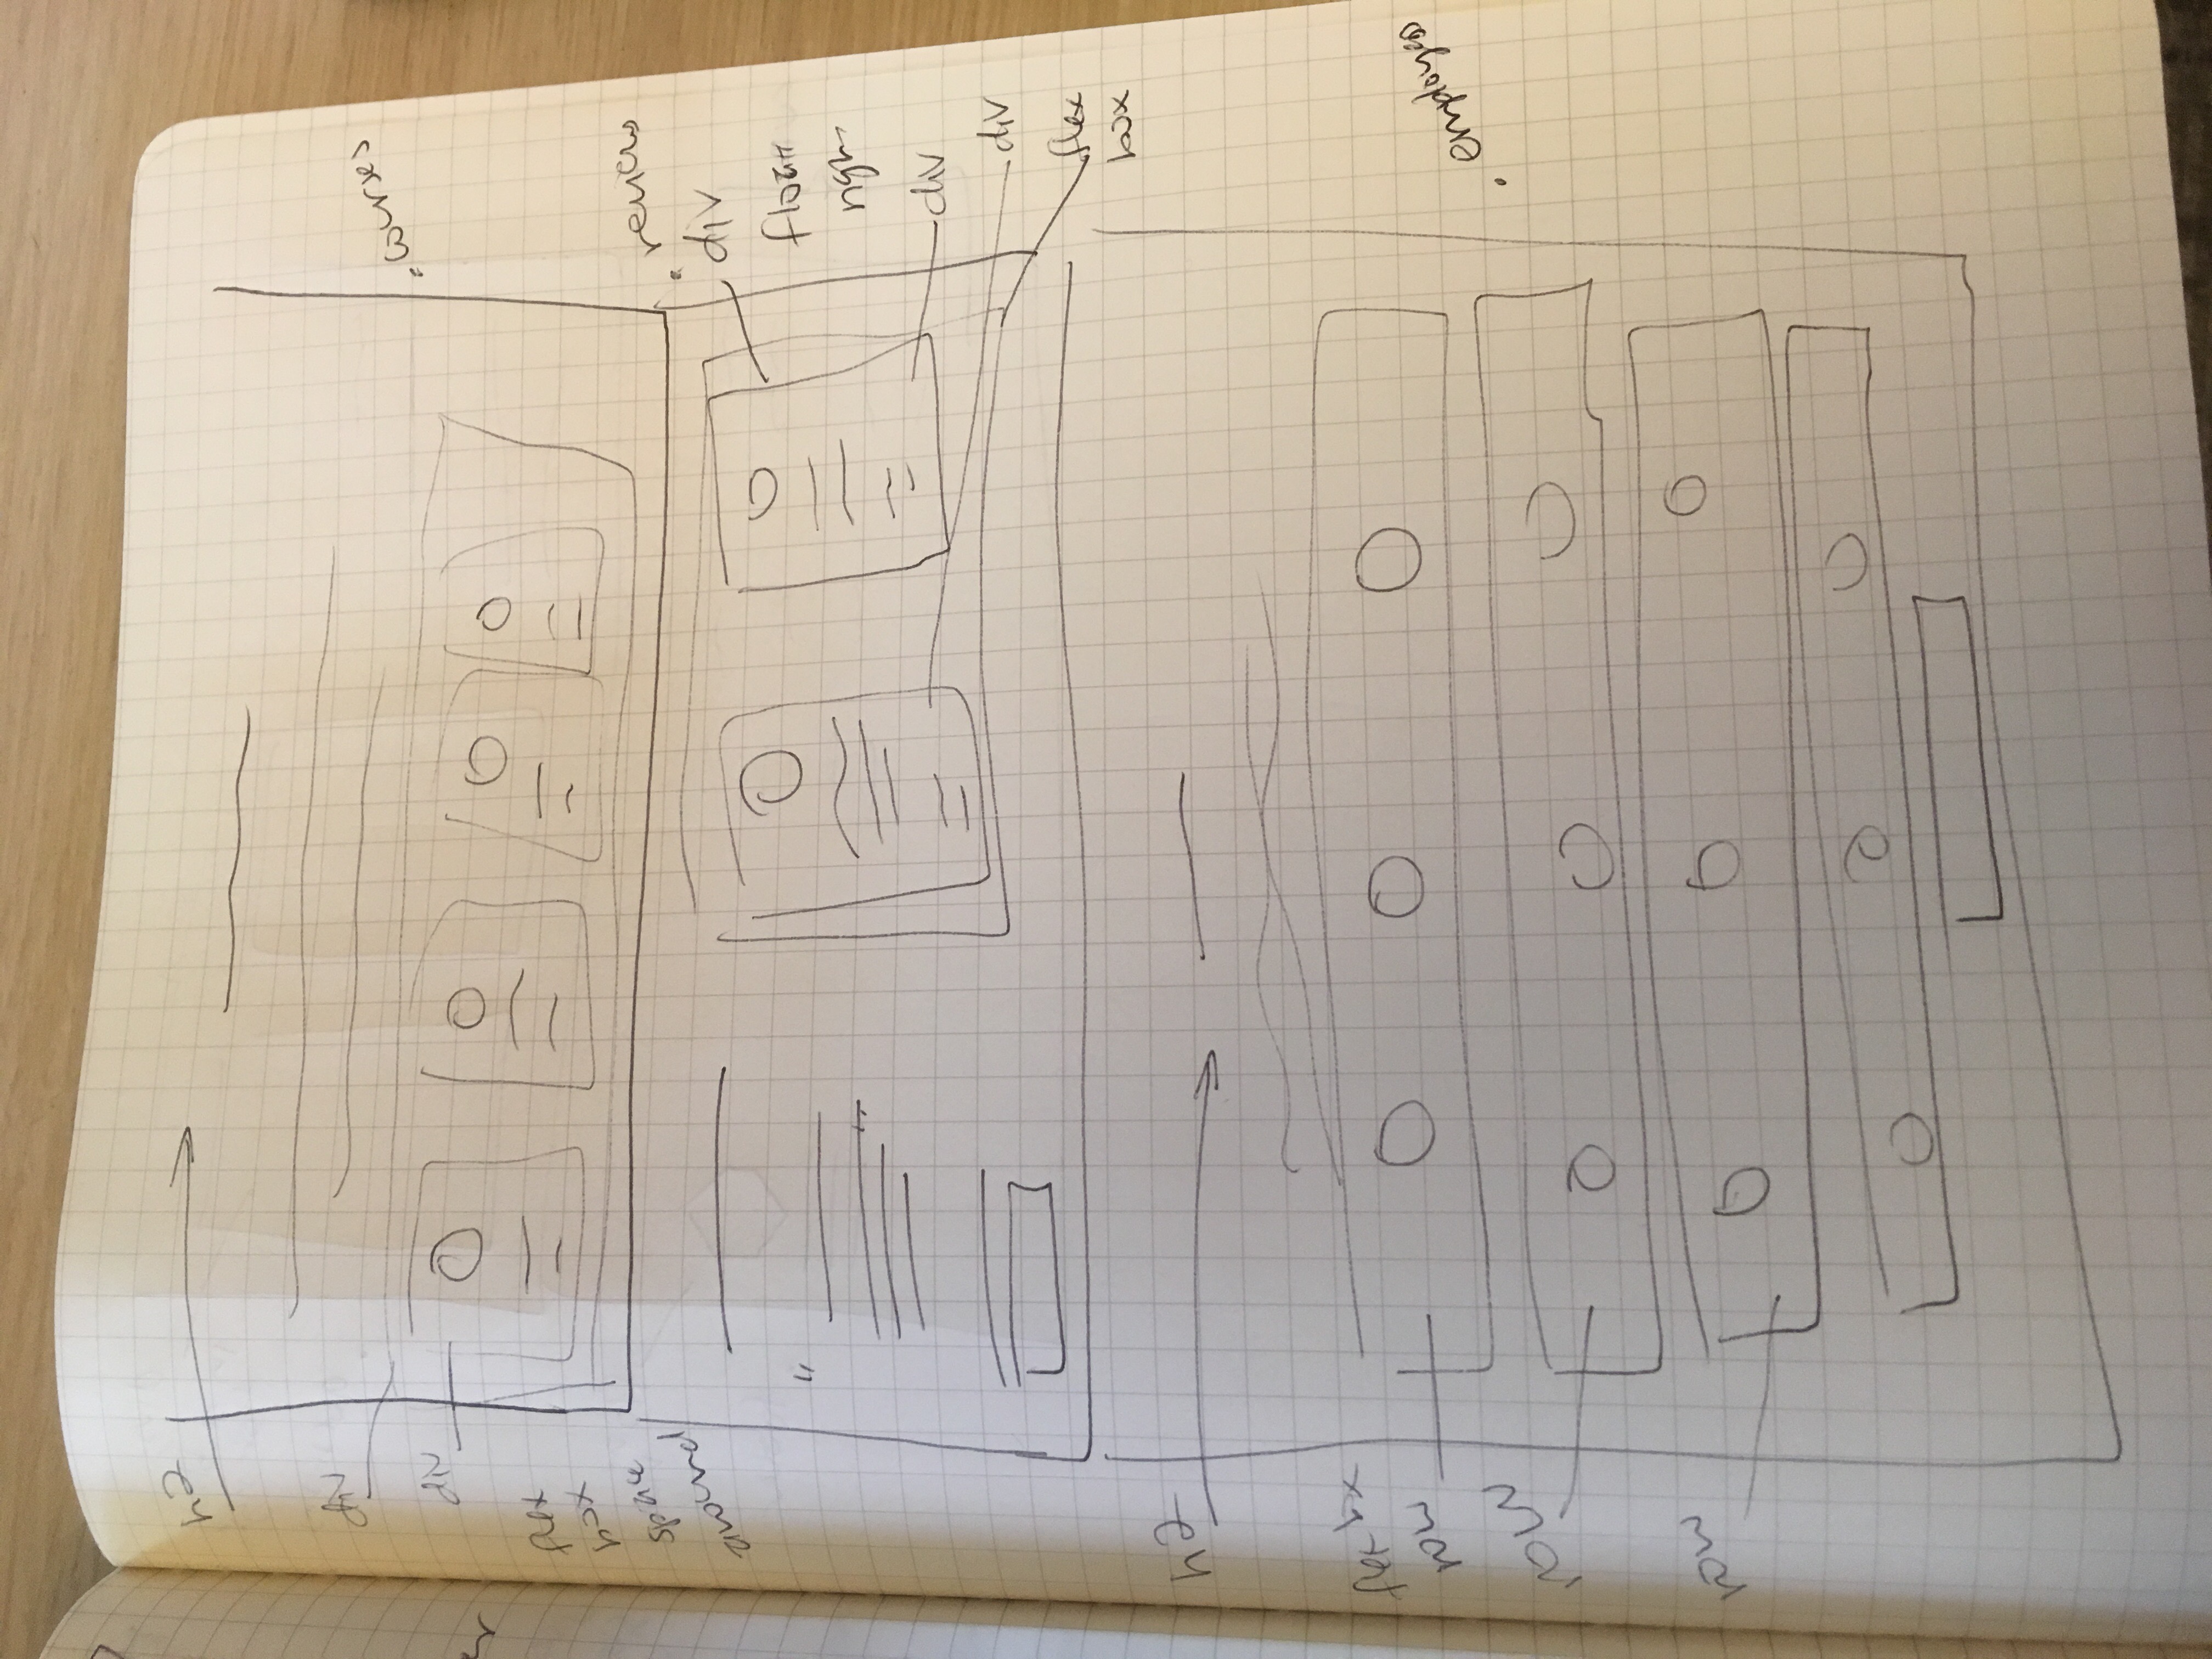 h2
div
div
flex
box
space
around
.courses
.reviews
div
float
right
"
"
div
div
flex
box
h2
flex box
row
row
row
.employees